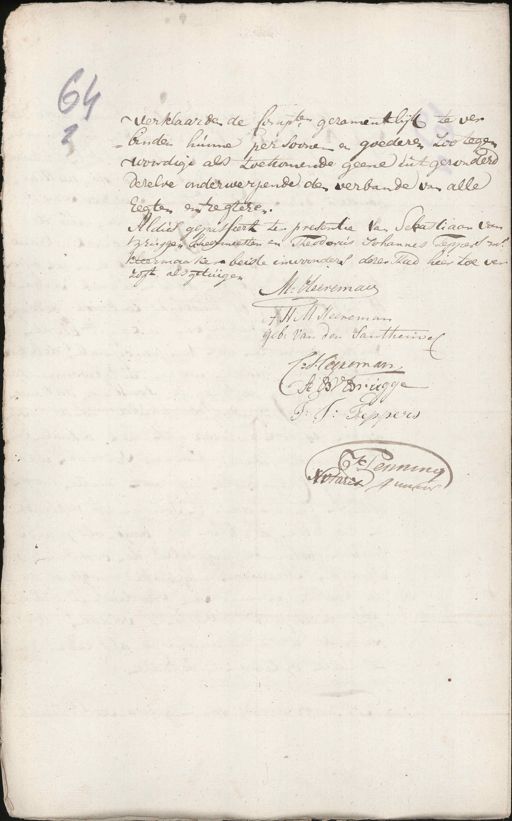 64
2
verklaarden de Compten gezamentlijk te ver
binden hunne Persoonen en goederen zoo tegen
woordige als toekomende geene uitgezonderd
dezelve onderwerpende den verbande van alle
regten en regteren.
Aldus gepasseert ten presentie van Sebastiaan van
en Theodorus Johannes Peppers
beide inwoonders dezer Stad hier toe ver
zogt als getuigen
M. Hareman
H M Hareman
geb. Van den Santheuvel
Brugge
T. J. Peppers
Penning
Notaris Junior